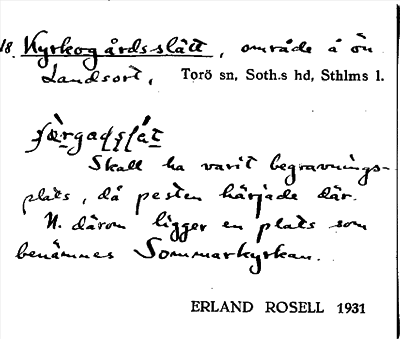 18. Kyrkogårds-slätt, område å ön
Landsort, Torö sn, Soth.s hd, Sthlms l.
Skall ha varit begravnings-
plats, då pesten härjade där.
N. därom ligger en plats som
benämnes Sommarkyrkan.
ERLAND ROSELL 1931